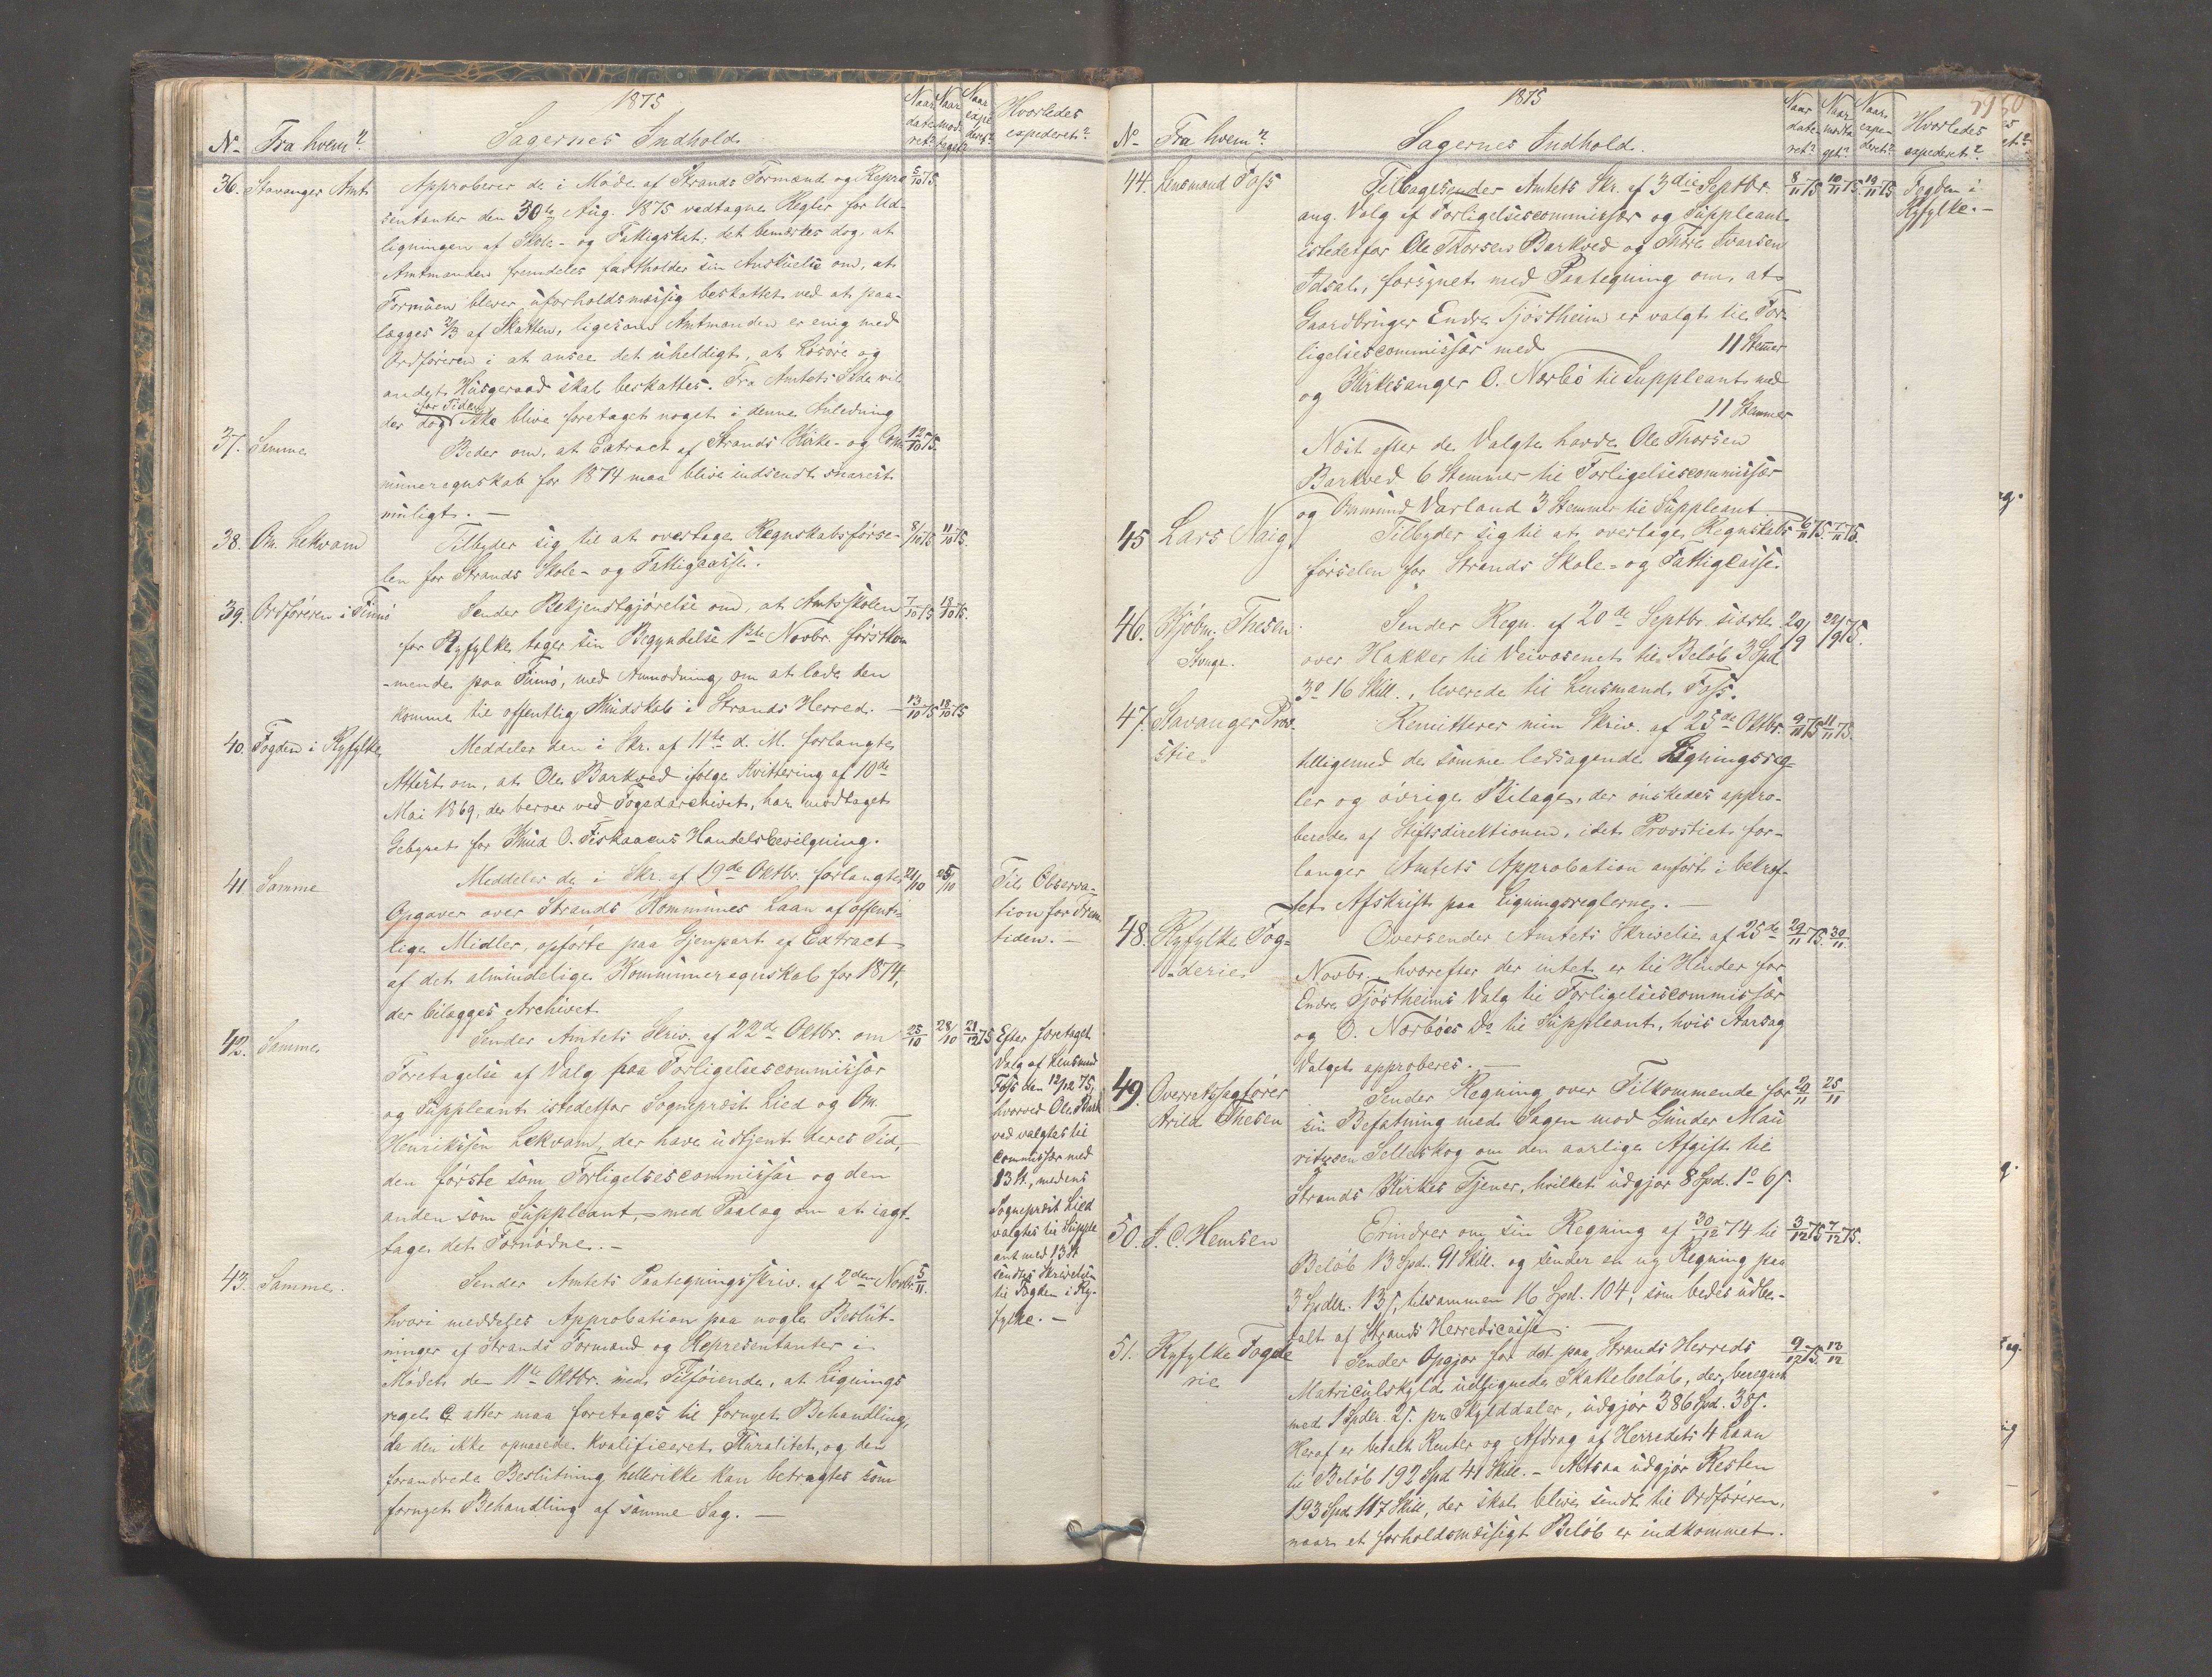 1875
No Fra hvem? Sagernes Indhold Naar dateret? Naar modtaget? Naar expederet? Hvorledes expederet?
36. Stavanger Amt Approberer de i Møde af Strands Formænd og Repræ- 5/10 75.
sentanter den 30te Aug. 1875 vedtagne Regler for Ud-
ligningen af Skole- og Fattigskat; det bemærkes dog, at
Amtmanden fremdeles fastholder sin Anskuelse om, at
Formuen bliver uforholdsmæssig beskattet ved at paa-
lægges 2/3 af Skatten, ligesom Amtmanden er enig med
Ordføreren i at ansee det uheldigt, at Løsøre og
andet Husgeraad skal beskattes. Fra Amtets Side vil
der dog for Tiden ikke blive foretaget noget i denne Anledning
37. Samme Beder om, at Extract af Strands Kirke- og Com- 12/10 75.
muneregnskab for 1874 maa blive indsendt snarest
muligt. —
38. Om. Lekvam Tilbyder sig til at overtage Regnskabsførse- 8/10 75 11/10 75.
len for Strands Skole- og Fattigcasse.
39. Ordføreren i Finnø Sender Bekjendtgjørelse om, at Amtsskolen 7/10 75 18/10 75.
for Ryfylke tager sin Begyndelse 1ste Novbr. førstkom
-mende paa Finnø, med Anmodning om at lade den
komme til offentlig Kundskab i Strands Herred. — 13/10 75 18/10 75
40. Fogden i Ryfylke Meddeler den i Skr. af 11te d. M. forlangte
Attest om, at Ole Barkved ifølge Kvittering af 10de
Mai 1869, der beroer ved Fogedarchivet, har modtaget
Gebyret for Knud O. Fiskaaens Handelsbevilgning.
41 Samme Meddeler de i Skr. af 19de Oktbr. forlangte 21/10 25/10 Til Observa-
Opgaver over Strands Kommunes Laan af offent- tion for Frem
lige Midler, opførte paa Gjenpart af Extract tiden. —
af det almindelige Kommuneregnskab for 1874,
der bilægges Archivet
42. Samme Sender Amtets Skriv. af 22de Oktbr. om 25/10 28/10 21/12 75 Efter foretaget
Foretagelse af Valg paa Forligelsescommissær Valg af Lensmand
og Suppleant istedetfor Sognepræst Lied og Om. Foss den 12/12 75,
Henrikssen Lekvam, der have udtjent deres Tid, hvorved Ole Bark
den første som Forligelsescommissær og den ved valgtes til
anden som Suppleant, med Paalæg om at iagt- Commissær med
tage det Fornødne. — 13 St., medens
Sognepræst Lied
valgtes til Supple
ant med 13 St.
sendtes Skrivelsen
til Fogden i Ry-
fylke. —
43. Samme. Sender Amtets Paategningsskriv. af 2den Novbr. 5/11.
hvori meddeles Approbation paa nogle Beslut-
ninger af Strands Formænd og Repræsentanter i
Mødet den 11te Oktbr. med Tilføiende, at Lignings
regel C atter maa foretages til fornyet Behandling,
da den ikke opnaaede kvalificeret Pluralitet, og den
forandrede Beslutning hellerikke kan betragtes som
fornyet Behandling af samme Sag. —
1875
No Fra hvem? Sagernes Indhold. Naar dateret? Naar modtaget? Naar expederet? Hvorledes expederet?
44. Lensmand Foss Tilbagesender Amtets Skr. af 3die Septbr. 8/11 75 10/11 75. 19/11 75 Fogden i
ang. Valg af Forligelsescommissær og Suppleant Ryfylke. —
istedetfor Ole Thorsen Barkved og Thore Ivarsen
Idsal, forsynet med Paategning om, at
Gaardbruger Endre Tjøstheim er valgt til For-
ligelsescommissær med 11 Stemmer
og Kirkesanger O. Nærbø til Suppleant med
11 Stemmer
Næst efter de Valgte havde Ole Thorsen
Barkved 6 Stemmer til Forligelsescommissær
og Ommund Varland 3 Stemmer til Suppleant
45 Lars Naig Tilbyder sig til at overtage Regnskabs- 6/11 75. 7/11 75.
førselen for Strands Skole- og Fattigcasse.
46. Kjøbm. Thesen Sender Regn. af 20de Septbr. sidstl. 20/9 22/9 75.
Stvngr. over Hakker til Veivæsenet til Beløb 3 Spd
3o 16 Skill., leverede til Lensmand Foss.
47. Stavanger Prov- Remitterer min Skriv. af 25de Oktbr. 9/11 75 11/11 75.
stie tilligemed de samme ledsagende Ligningsreg-
ler og øvrige Bilage, der ønskedes appro-
berede af Stiftsdirektionen, idet Provstiet for-
langer Amtets Approbation anført i bekræf-
tet Afskrift paa Ligningsreglerne. —
48. Ryfylke Fog- Oversender Amtets Skrivelse af 25de 29/11 75. 30/11
-derie Novbr. hvorefter der intet er til Hinder for
Endre Tjøstheims Valg til Forligelsescommissær
og O. Nærbøes Do til Suppleant, hvis Aarsag
Valget approberes. —
49. Overretssagfører Sender Regning over Tilkommende for 20/11 25/11
Arild Thesen sin Befatning med Sagen mod Gunder Mau
ritzsen Selleskog om den aarlige Afgift til
Strands Kirkes Tjener, hvilket udgjør 8 Spd. 1o 6 s.
50. J. C. Hemsen Erindrer om sin Regning af 30/12 74 til 3/12 75 7/12 75.
Beløb 13 Spd. 91 Skill. og sender en ny Regning paa
3 Spdlr. 13 s, tilsammen 16 Spd. 104, som bedes udbe-
talt af Strands Herredscasse. —
51. Ryfylke Fogde Sender Opgjør for det paa Strands Herreds 9/12 75. 13/12
rie Matriculskyld udlignede Skattebeløb, der, beregnet
med 1 Spdlr. 2 s. pr. Skylddaler, udgjør 386 Spd. 38 s.
Heraf er betalt Renter og Afdrag af Herredets 4 Laan
til Beløb 192 Spd 41 Skill. — Altsaa udgjør Resten
193 Spd 117 Skill, der skal blive sendt til Ordføreren,
naar et forholdsmæssigt Beløb er indkommet.